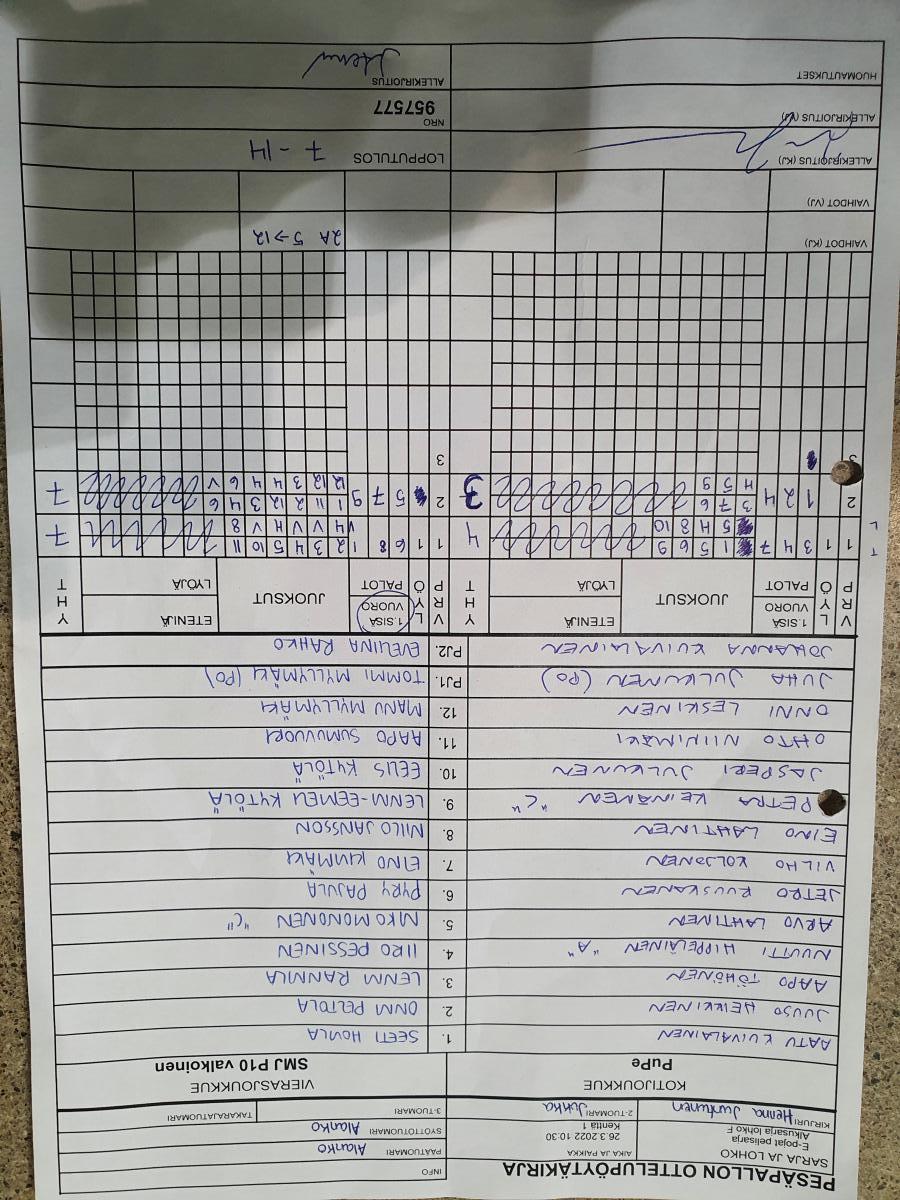 PESÄPALLON OTTELUPÖYTÄKIRJA
INFO
SARJA JA LOHKO
E-pojat pelisarja
Alkusarja lohko F
AIKA JA PAIKKA
26.3.2022 10:30
Kenttä 1
PÄÄTUOMARI Alanko
SYÖTTÖTUOMARI Alanko
KIRJURI Henna Juntunen
2-TUOMARI Jukka
3-TUOMARI
TAKARAJATUOMARI
KOTIJOUKKUE
VIERASJOUKKUE
PuPe
SMJ P10 valkoinen
AATU KUIVALAINEN 1. SEETI HONILA
JUUSO HEIKKINEN 2. ONNI PELTOLA
AAPO TÖHÖNEN 3. LENNI RANNILA
NUUTTI HIPPELÄINEN "A" 4. IIRO PESSINEN
ARVO LAHTINEN 5. NIKO MONONEN "C"
JETRO RUUSKANEN 6. PYRY PAJULA
VILHO KOLJONEN 7. EINO KINMÄKI
EINO LAHTINEN 8. NIILO JANSSON
PETRA KEINÄNEN "C" 9. LENNI-EEMELI KYTÖLÄ
JASPERI JULKUNEN 10. EELIS KYTÖLÄ
OHTO NIINIMÄKI 11. AAPO SUMUVUORI
ONNI LESKINEN 12. MANU MYLLYMÄKI
JUHA JULKUNEN (PO) PJ1. TOMMI MYLLYMÄKI (PO)
JOHANNA KUIVALAINEN PJ2. EVELIINA RAHKO
VRP LYÖ 1.SISÄVUORO PALOT JUOKSUT ETENIJÄ LYÖJÄ YHT
VRP LYÖ 1.SISÄVUORO PALOT JUOKSUT ETENIJÄ LYÖJÄ YHT
1 1 3 4 7 1 5 6 9 4
5 H 8 10
1 1 6 8 1 2 3 4 5 10 11 7
V4 V V H V 8
2 1 2 4 3 7 6 3
H 5 9
2 5 7 9 1 11 2 12 3 4 6 7
12 12 3 4 4 6 V
3
3
VAIHDOT (KJ)
2A 5→12
VAIHDOT (VJ)
ALLEKIRJOITUS (KJ)
LOPPUTULOS 7 - 14
ALLEKIRJOITUS (VJ)
NRO
957577
HUOMAUTUKSET
ALLEKIRJOITUS